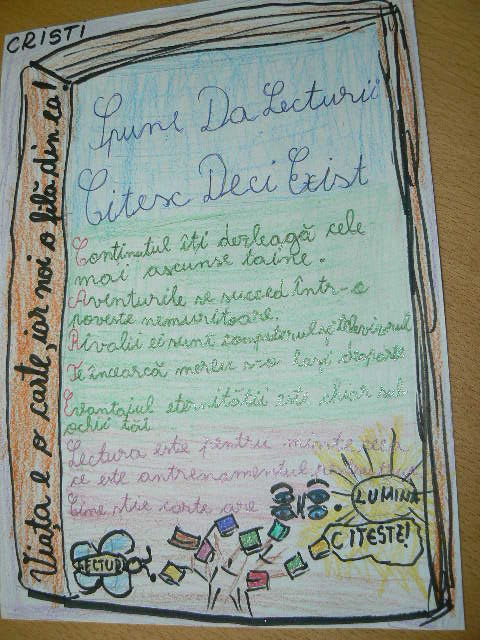 CRISTI
Viața e o carte, iar noi o filă din ea!
Spune Da Lecturii
Citesc Deci Exist
Conținutul îți dezleagă cele
mai ascunse taine.
Aventurile se succed într-o
poveste nemuritoare.
Rivalii ei sunt computerul și televizorul
Te încearcă mereu s-o lași deoparte
Evantajul eternității este chiar sub
ochii tăi
Lectura este pentru minte ceea
ce este antrenamentul
Cine știe carte are
LUMINA
CITEȘTE!
LECTURA